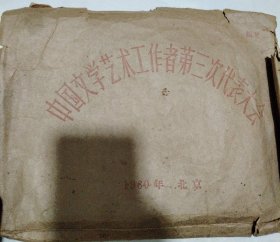 中国文学艺术工作者第三次代表大会
1960年 北京